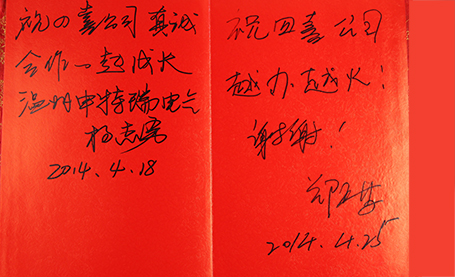 祝四喜公司真诚
合作一起成长
温州申特瑞电气
2014.4.18
祝四喜公司
越办越火!
谢谢!
2014.4.25